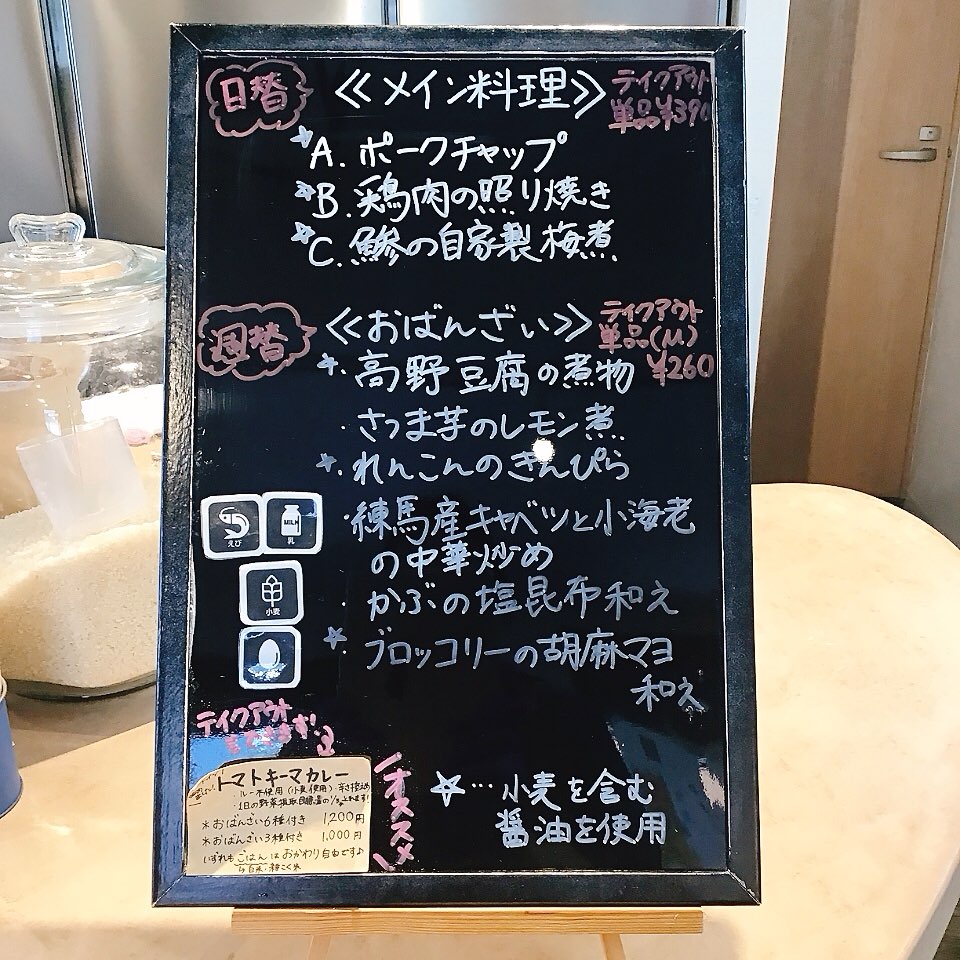 日替
≪メイン料理≫
テイクアウト
単品¥390
☆A. ポークチャップ
☆B. 鶏肉の照り焼き
☆C. 鯵の自家製梅煮
週替
≪おばんざい≫
テイクアウト
単品(M)
¥260
☆・高野豆腐の煮物
・さつま芋のレモン煮
☆・れんこんのきんぴら
・練馬産キャベツと小海老
の中華炒め
・かぶの塩昆布和え
☆・ブロッコリーの胡麻マヨ
和え
えび
MILK
乳
小麦
テイクアウト
もできます
トマトキーマカレー
ルー不使用(小麦使用)・辛さ控えめ
・1日の野菜摂取目標量の
*おばんざい6種付き 1,200円
*おばんざい3種付き 1,000円
いずれもごはんはおかわり自由です♪
オススメ
☆…小麦を含む
醤油を使用